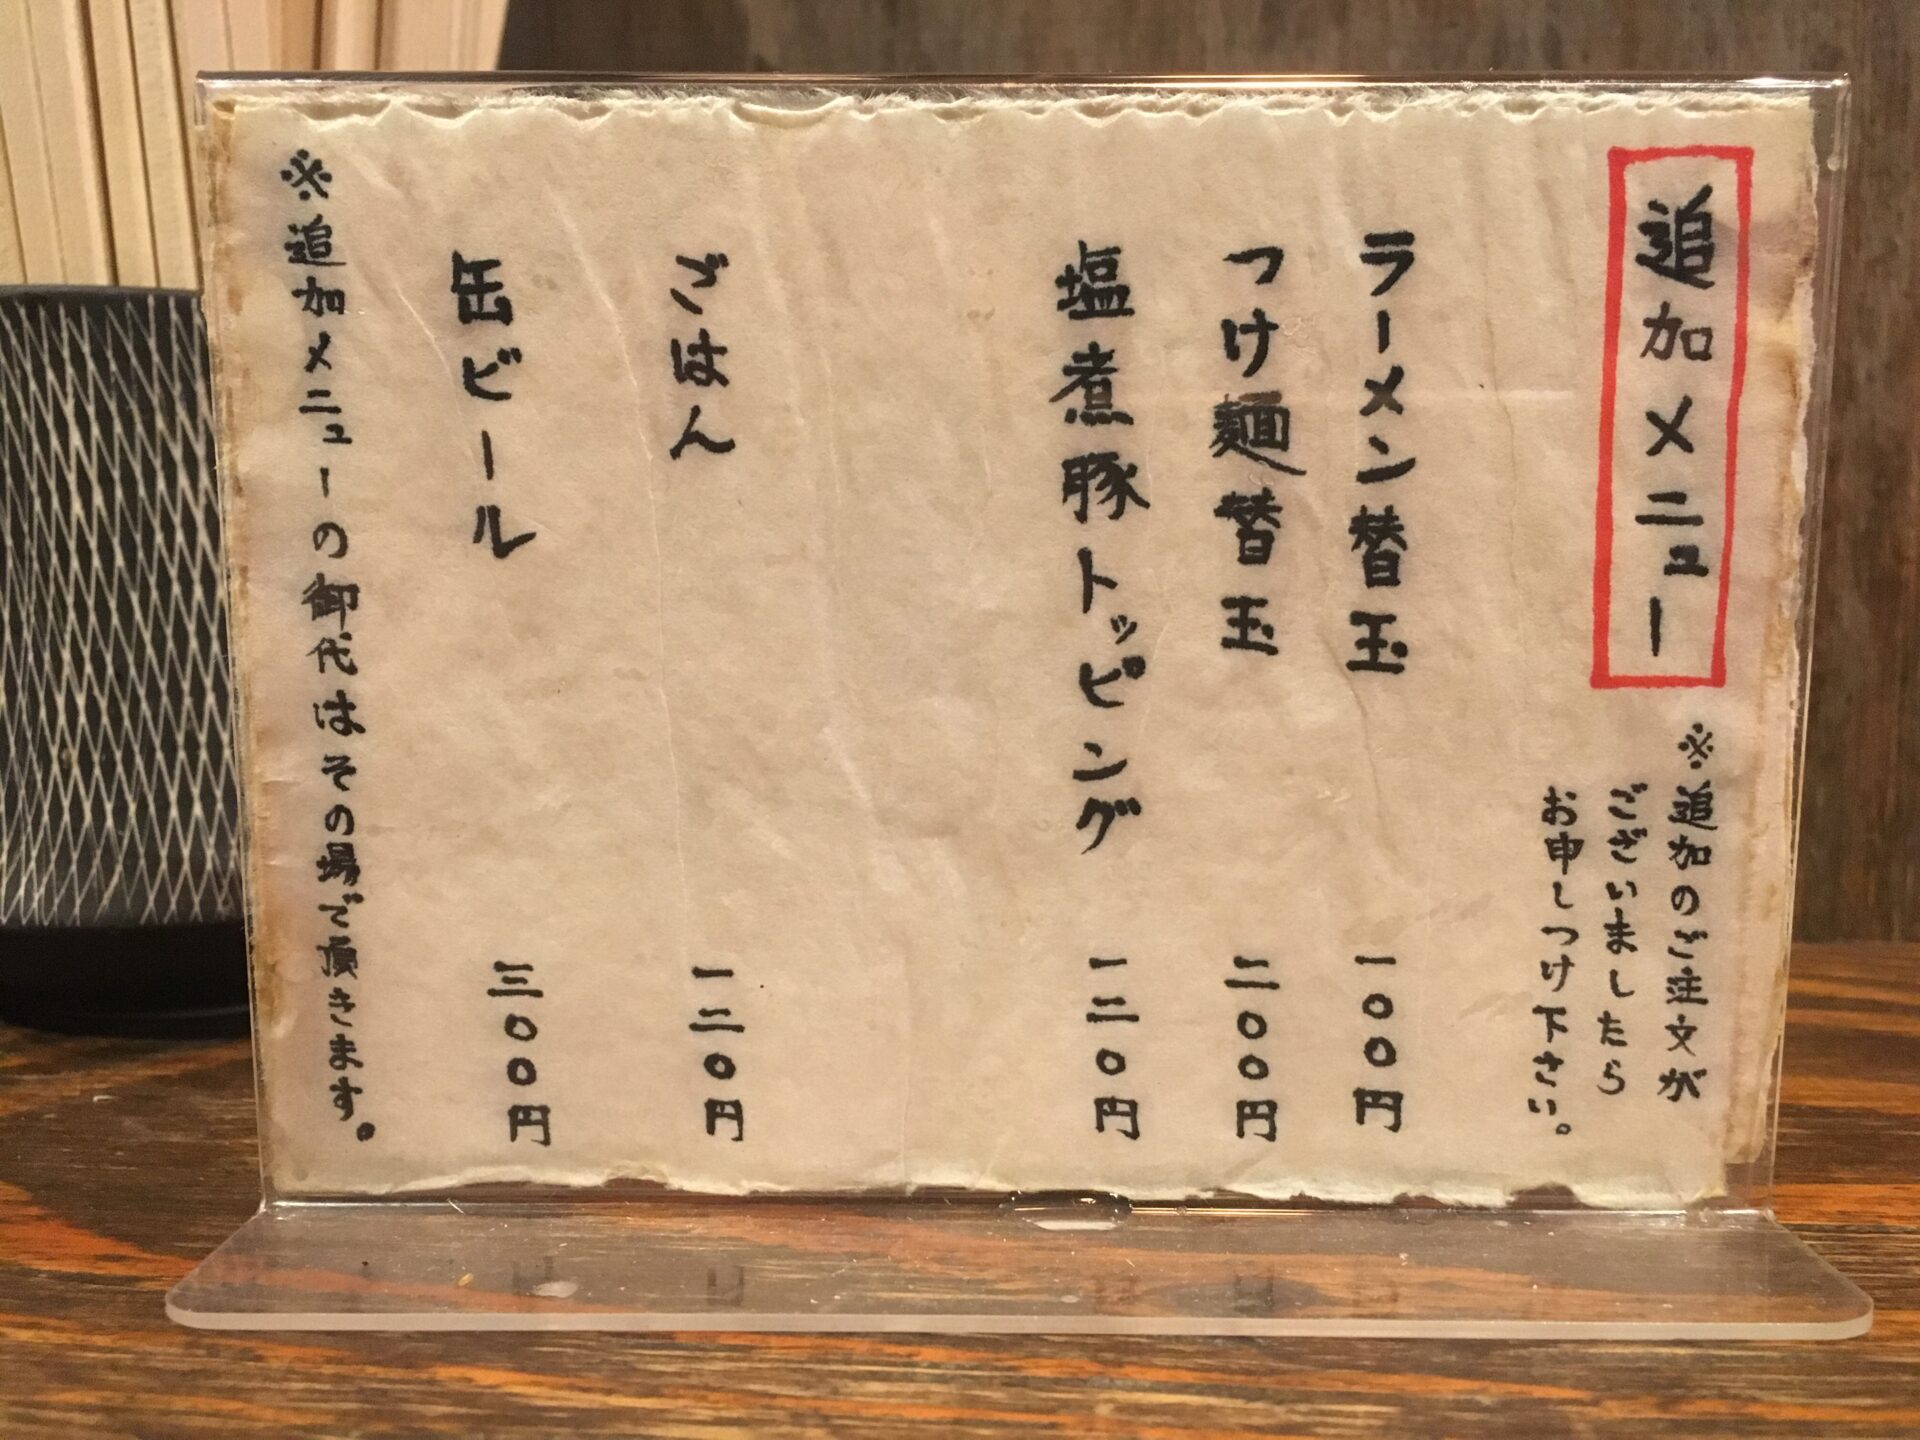 追加メニュー
※追加のご注文が
ございましたら
お申しつけ下さい。
ラーメン替玉 一〇〇円
つけ麺替玉 二〇〇円
塩煮豚トッピング 一三〇円
ごはん 一三〇円
缶ビール 三〇〇円
※追加メニューの御代はその場で頂きます。